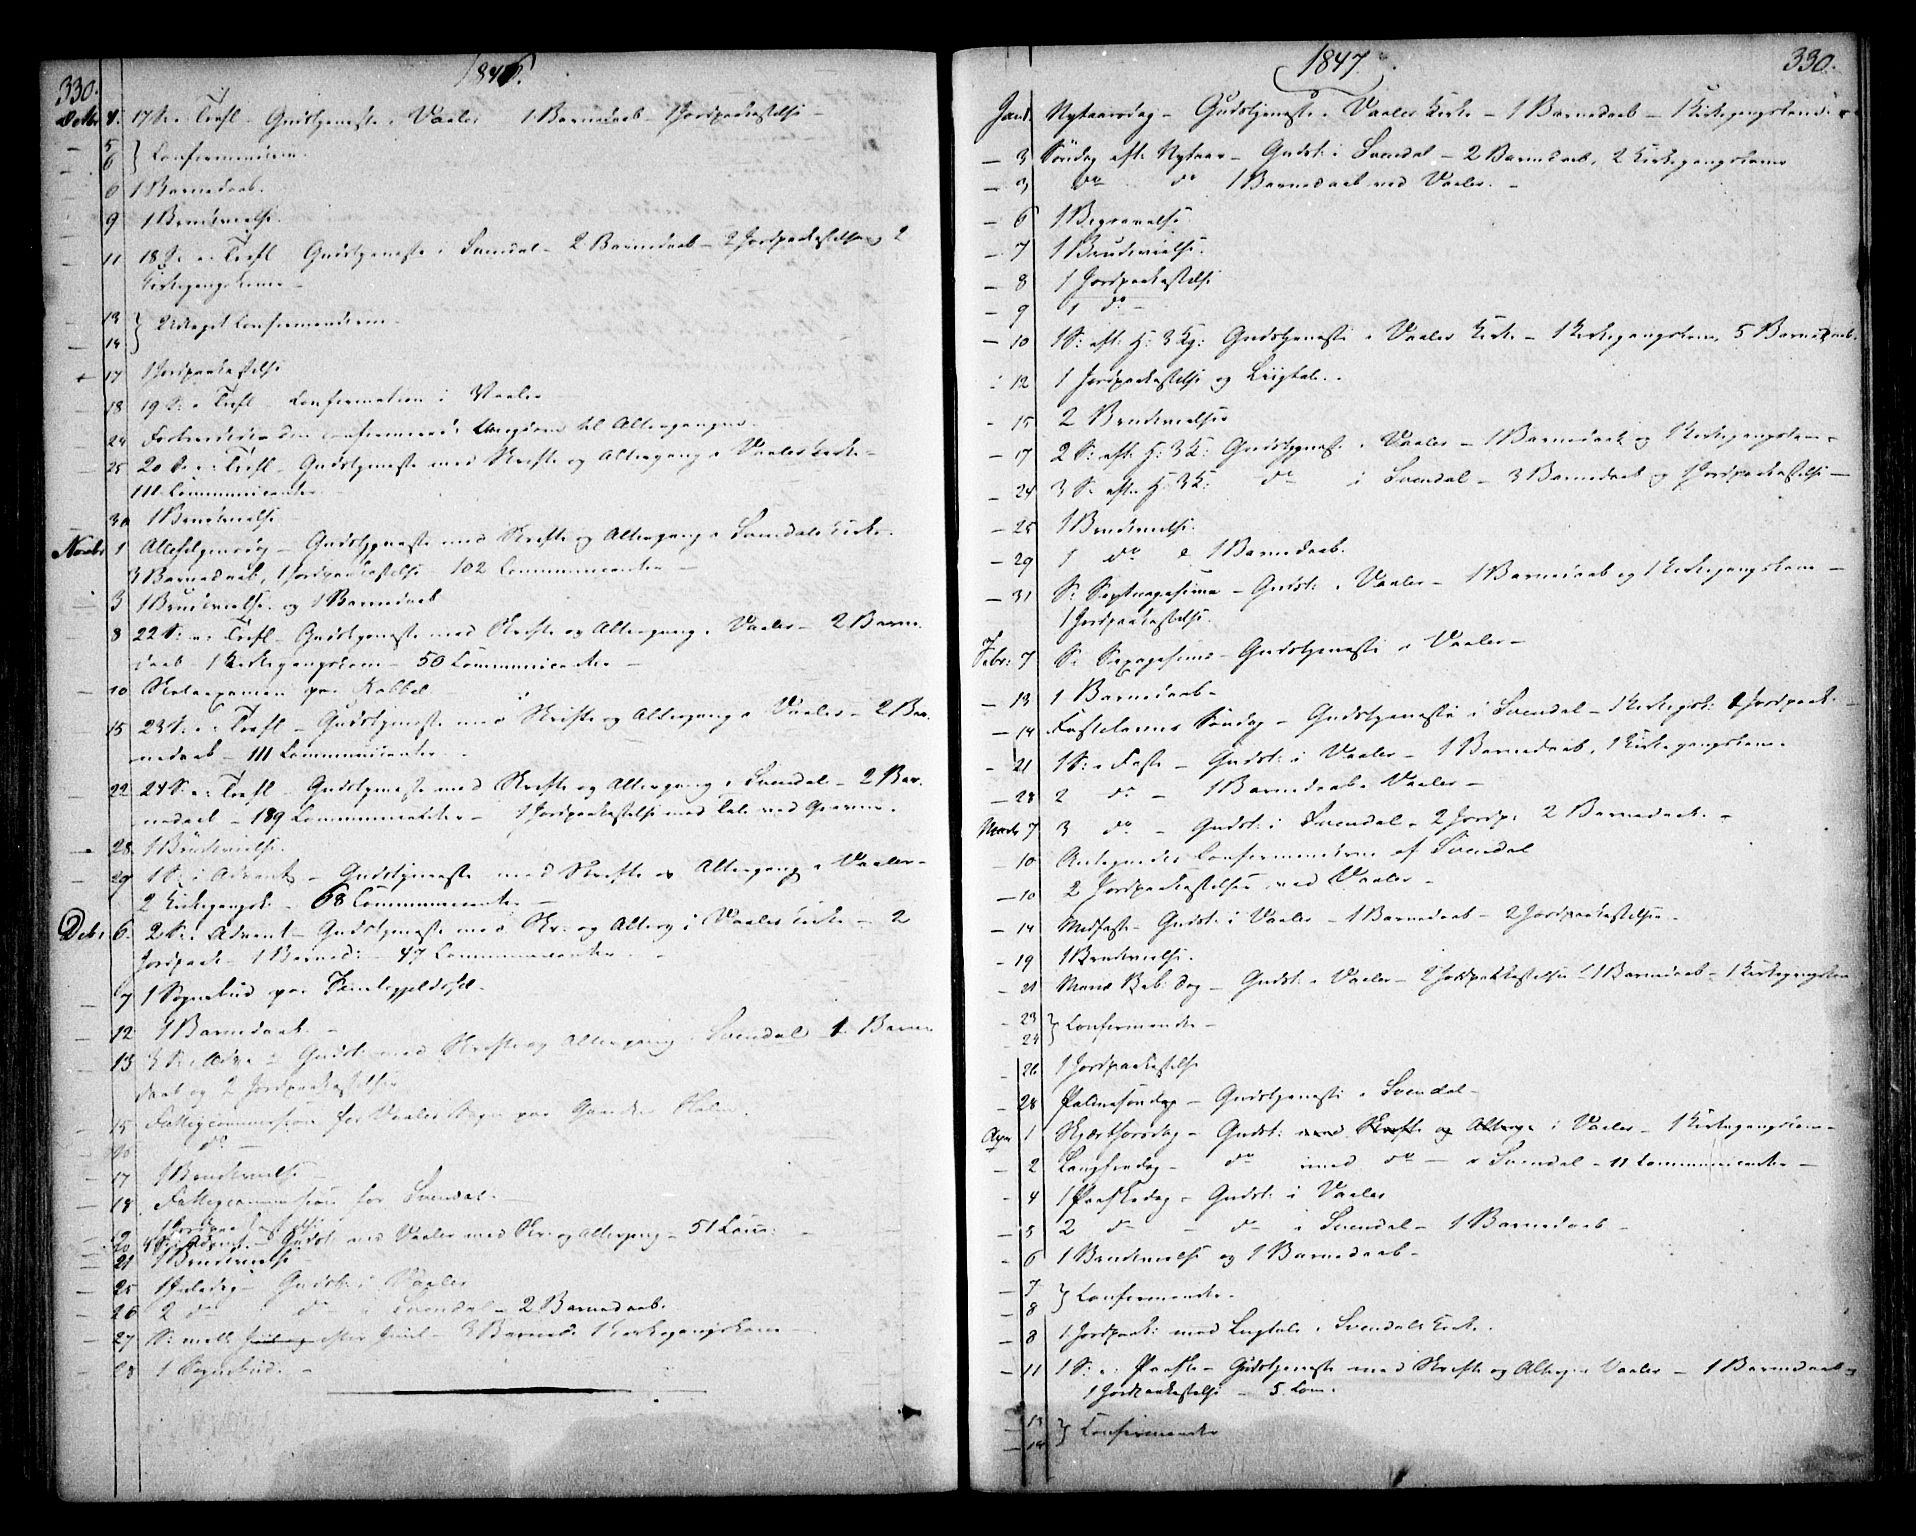 330.
1846.
Octbr 4. 17 S. e. Trefl. - Gudstjeneste i Vaaler 1 Barnedaab - 1 Jordpaakastelse -
- 5 } Confirmanderne
- 6
- 6 1 Barnedaab.
- 9 1 Brudevielse.
- 11 18 S. e. Trefl. Gudstjeneste i Svendal - 2 Barnedaab - 2 Jordpaakastelse og 2
Kirkegangskoner -
- 13 } Confirmanderne -
- 14
- 17 1 Jordpaakastelse
- 18 19 S. e. Trefl. Confirmation i Vaaler
- 24 den confirmerede Ungdom til Altergangen -
- 25 20 S. e. Trefl. - Gudstjeneste med Skrifte og Altergang i Vaalers Kirke -
111 Communicanter -
- 30 1 Brudevielse -
Novbr 1 Allehelgensdag - Gudstjeneste med Skrifte og Altergang i Svendals Kirke.
3 Barnedaab, 1 Jordpaakastelse - 102 Communicanter -
3 1 Brudevielse og 1 Barnedaab
- 8 22 S. e. Trefl. - Gudstjeneste med Skrifte og Altergang i Vaaler - 2 Barne-
daab - 1 Kirkegangskone - 50 Communicanter -
- 10 Skoleexamen paa
- 15 23 S. e. Trefl. - Gudstjeneste med Skrifte og Altergang i Vaaler - 2 Bar-
nedaab - 111 Communicanter -
- 22 24 S. e. Trefl. - Gudstjeneste med Skrifte og Altergang i Svendal - 2 Bar-
nedaab - 189 Communicanter - 1 Jordpaakastelse med Tale ved Graven.
- 28 1 Brudevielse.
- 29 1 S. i Advent - Gudstjeneste med Skrifte og Altergang i Vaaler -
2 Kirkegangsk. - 68 Communicanter -
Debr 6. 2 S. i Advent - Gudstjeneste med Skr. og Alterg. i Vaaler Kirke - 2
Jordpaak - 1 Barned: - 47 Communicanter -
- 7 1 Sognebud paa
- 12 1 Barnedaab. -
- 13 3 S. i Adv. - Gudst: med Skrifte og Altergang i Svendal 1 Barne-
daab og 2 Jordpaakastelser
- 15 Fattigcommission for Vaaler Sogn paa
- 16 do -
- 17 1 Brudevielse -
- 18 Fattigcommission for Svendal. -
1 Jordpaakastelse
- 20 4 S. i Advent - Gudst. ved Vaaler med Skr. og Altergang - 51 Com: -
- 21 1 Brudevielse -
- 25 1 Juledag - Gudst: i Vaaler
- 26 2 do do i Svendal - 2 Barnedaab.
- 27 S: mell: Juul og efter Juul - 3 Barned. 1 Kirkegangskone -
- 28 1 Sognebud. -
1847.
330.
Jan. 1 Nytaarsdag - Gudstjeneste i Vaaler Kirke - 1 Barnedaab - 1 Kirkegangskone
- 3 Søndag eft: Nytaar - Gudst: i Svendal - 2 Barnedaab, 2 Kirkegangskoner
- 3 do do 1 Barnedaab ved Vaaler. -
- 6 1 Begravelse
- 7 1 Brudevielse.
- 8 1 Jordpaakastelse
- 9 1 do -
- 10 1 S: eft: H: 3 Kg: Gudstjeneste i Vaaler Kirke - 1 Kirkegangskone, 5 Barnedaab.
- 12 1 Jordpaakastelse og Liigtale.
- 15 2 Brudevielser
- 17 2 S: eft: H: 3 K: Gudstjeneste i Vaaler - 1 Barnedaab og 1 Kirkegangskone -
- 24 3 S: eft. H: 3 K: do i Svendal - 3 Barnedaab og 1 Jordpaakastelse -
- 25 1 Brudevielse.
- 29 1 do & 1 Barnedaab.
- 31 S: Septuagesima - Gudst: i Vaaler - 1 Barnedaab og 1 Kirkegangskone -
1 Jordpaakastelse.
Febr: 7 S: Sexagesima - Gudstjeneste i Vaaler -
- 13 1 Barnedaab -
- 14 Fastelavns Søndag - Gudstjeneste i Svendal - 1 Kirkegsk: 1 Jordpaak. -
- 21 1 S: i Faste - Gudst: i Vaaler - 1 Barnedaab, 1 Kirkegangskone.
- 28 2 do - 1 Barnedaab i Vaaler -
Marts 7 3 do - Gudst: i Svendal - 2 Jordp: 2 Barnedaab. -
- 10 Antegnedes Confirmanderne af Svendal
- 10 2 Jordpaakastelser ved Vaaler -
- 14 Midfaste - Gudst: i Vaaler - 1 Barnedaab - 2 Jordpaakastelser. -
- 19 1 Brudevielse.
- 21 Mariæ Beb: Dag - Gudst: i Vaaler - 2 Jordpaakastelser 1 Barnedaab - 1 Kirkegangskone
- 23 } Confirmander -
- 24
- 26 1 Jordpaakastelse
- 28 Palmesøndag - Gudstjeneste i Svendal -
Apr 1 Skjærthorsdag - Gudst: med Skrifte og Alterg. i Vaaler - 1 Kirkegangskone -
- 2 Langfredag - do med do - i Svendal - 11 Communicanter -
- 4 1 Paaskedag - Gudst: i Vaaler
- 5 2 do - do i Svendal - 1 Barnedaab -
- 6 1 Brudevielse og 1 Barnedaab -
- 7 } Confirmander -
- 8
- 8 1 Jordpaak: med Liigtale i Svendals Kirke.
- 11 1 S: e: Paaske - Gudstjeneste med Skrifte og Alterg. i Vaaler - 1 Barnedaab
1 Jordpaakastelse - 5 Com.
- 13 } Confirmander
- 14